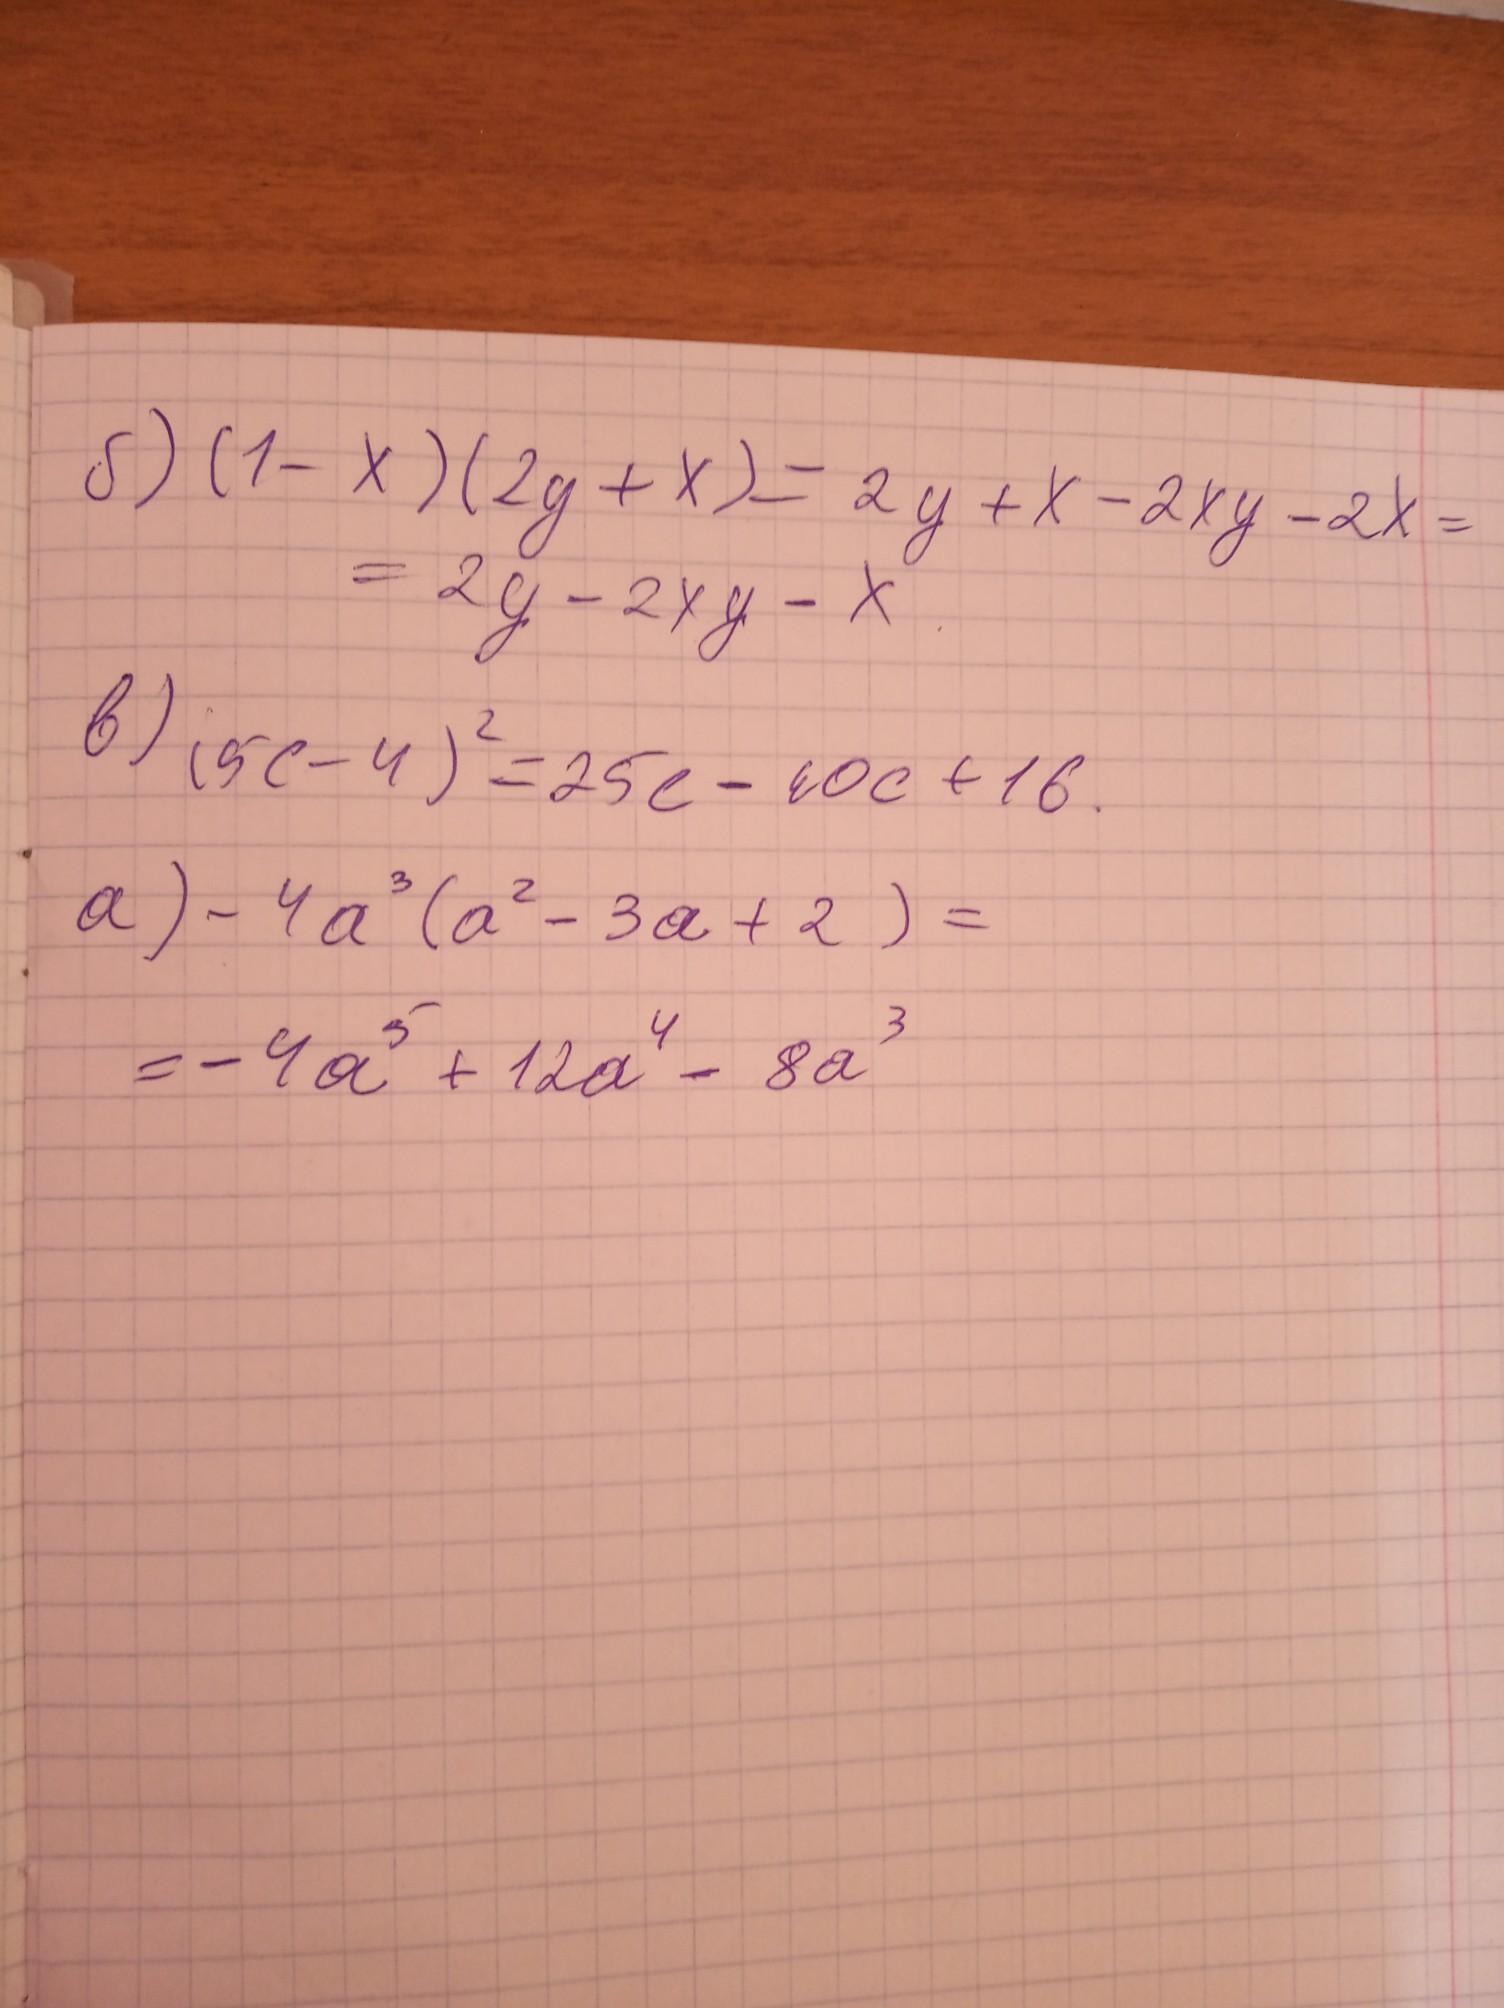 б) (1 - x)(2y + x) = 2y + x - 2xy - 2x =
= 2y - 2xy - x
в) (5c - 4)² = 25c - 40c + 16.
а) - 4a³(a² - 3a + 2) =
= - 4a⁵ + 12a⁴ - 8a³